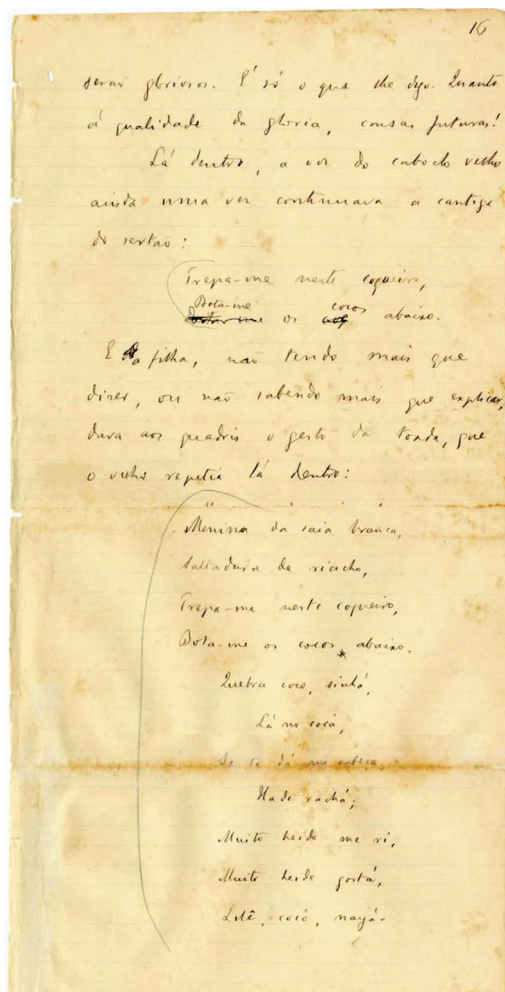 16
serão gloriosos. É só o que lhe digo. Quanto
á qualidade da gloria, cousas futuras!
Lá dentro, a voz do caboclo velho
ainda uma vez continuava a cantiga
do sertão:
Trepa-me neste coqueiro,
Bota-me os cocos abaixo.
E a filha, não tendo mais que
dizer, ou não sabendo mais que explicar,
dava aos quadris o gesto da toada, que
o velho repetia lá dentro:
Menina da saia branca,
Saltadeira de riacho,
Trepa-me neste coqueiro,
Bota-me os cocos abaixo.
Quebra coco, sinhá,
Lá no cocá,
Se te dá na cabeça,
Hade rachá;
Muito heide me ri,
Muito heide gostá,
Lelê, cocô, nayá.